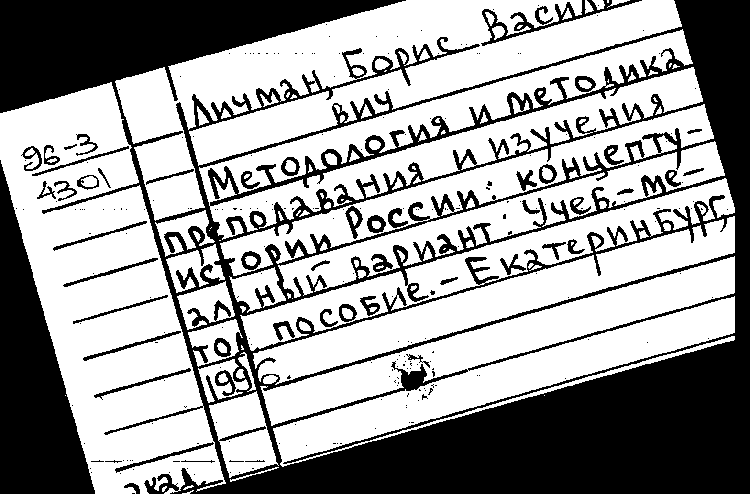 Личман, Борис Василь
вич
96-3
4301
Методология и методика
преподавания и изучения
истории России: концепту-
альный вариант: Учеб.-ме-
тод. пособие.-Екатеринбург,
1996.
акад.